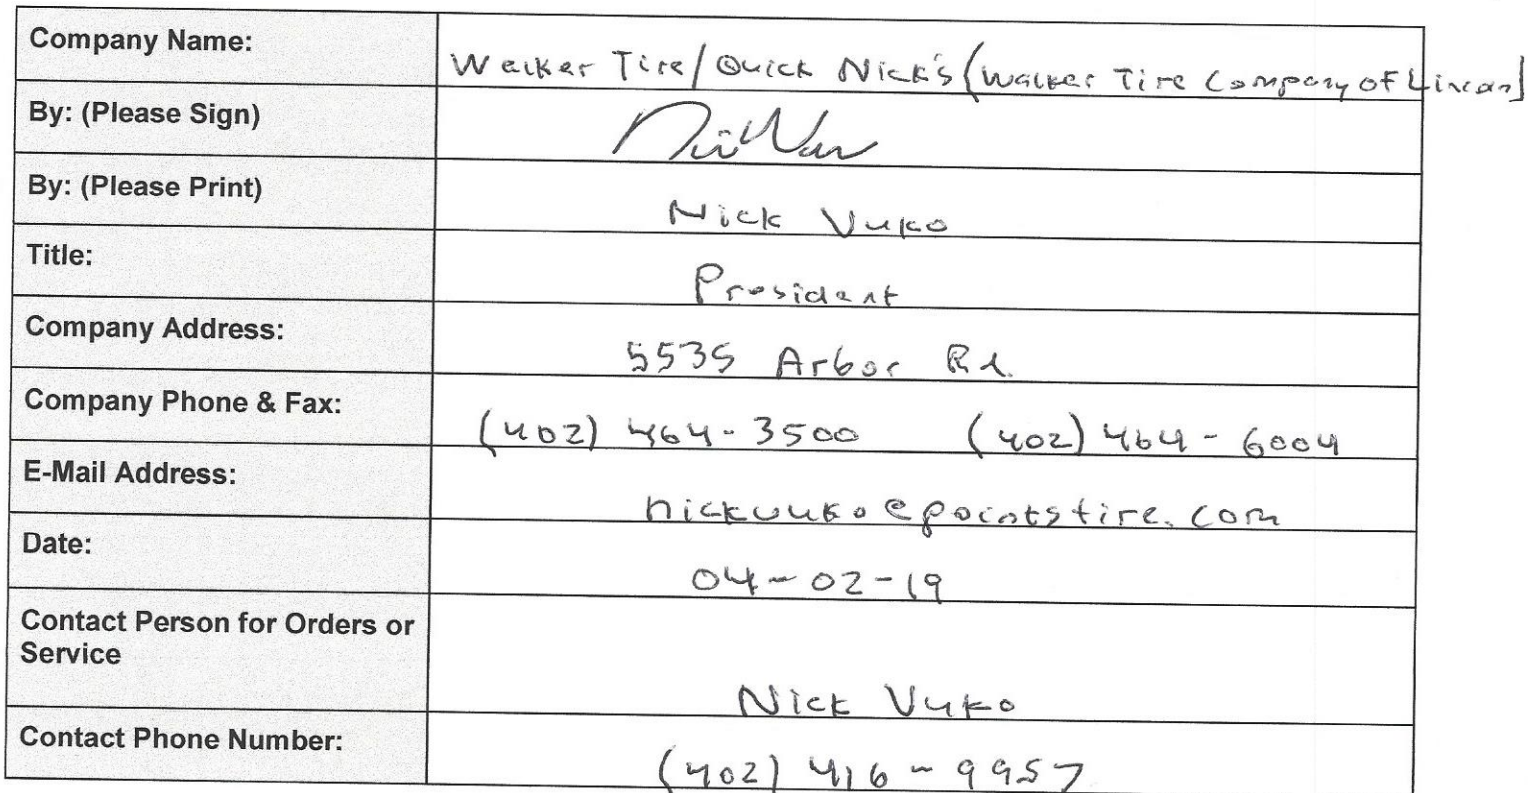 Company Name: Walker Tire/Quick Nick's (Walker Tire Company of Lincoln)
By: (Please Sign)
By: (Please Print) Nick Vuko
Title: President
Company Address: 5535 Arbor Rd.
Company Phone & Fax: (402) 464-3500 (402) 464-6004
E-Mail Address: nickvuko@pointstire.com
Date: 04-02-19
Contact Person for Orders or
Service
Nick Vuko
Contact Phone Number: (402) 416-9957